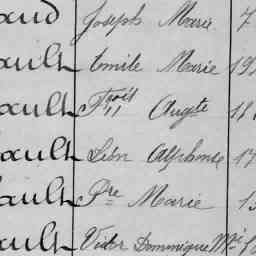 aud Joseph Marie 7
ault Emile Marie 19
ault Fçois Augte 11
ault Léon Alphonse 17
ault Pre Marie 15
ault Victor Dominique Mie